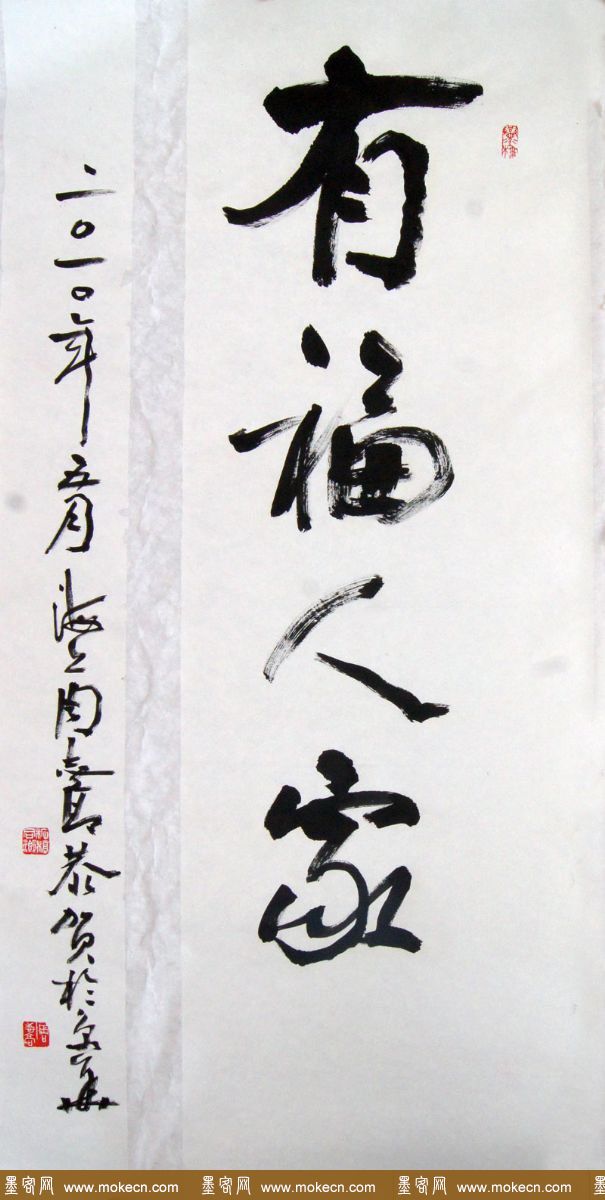 有福人家
二〇一〇年五月海上周喜恭贺於京華
墨客网 www.mokecn.com 墨客网 www.mokecn.com 墨客网 www.mokecn.com